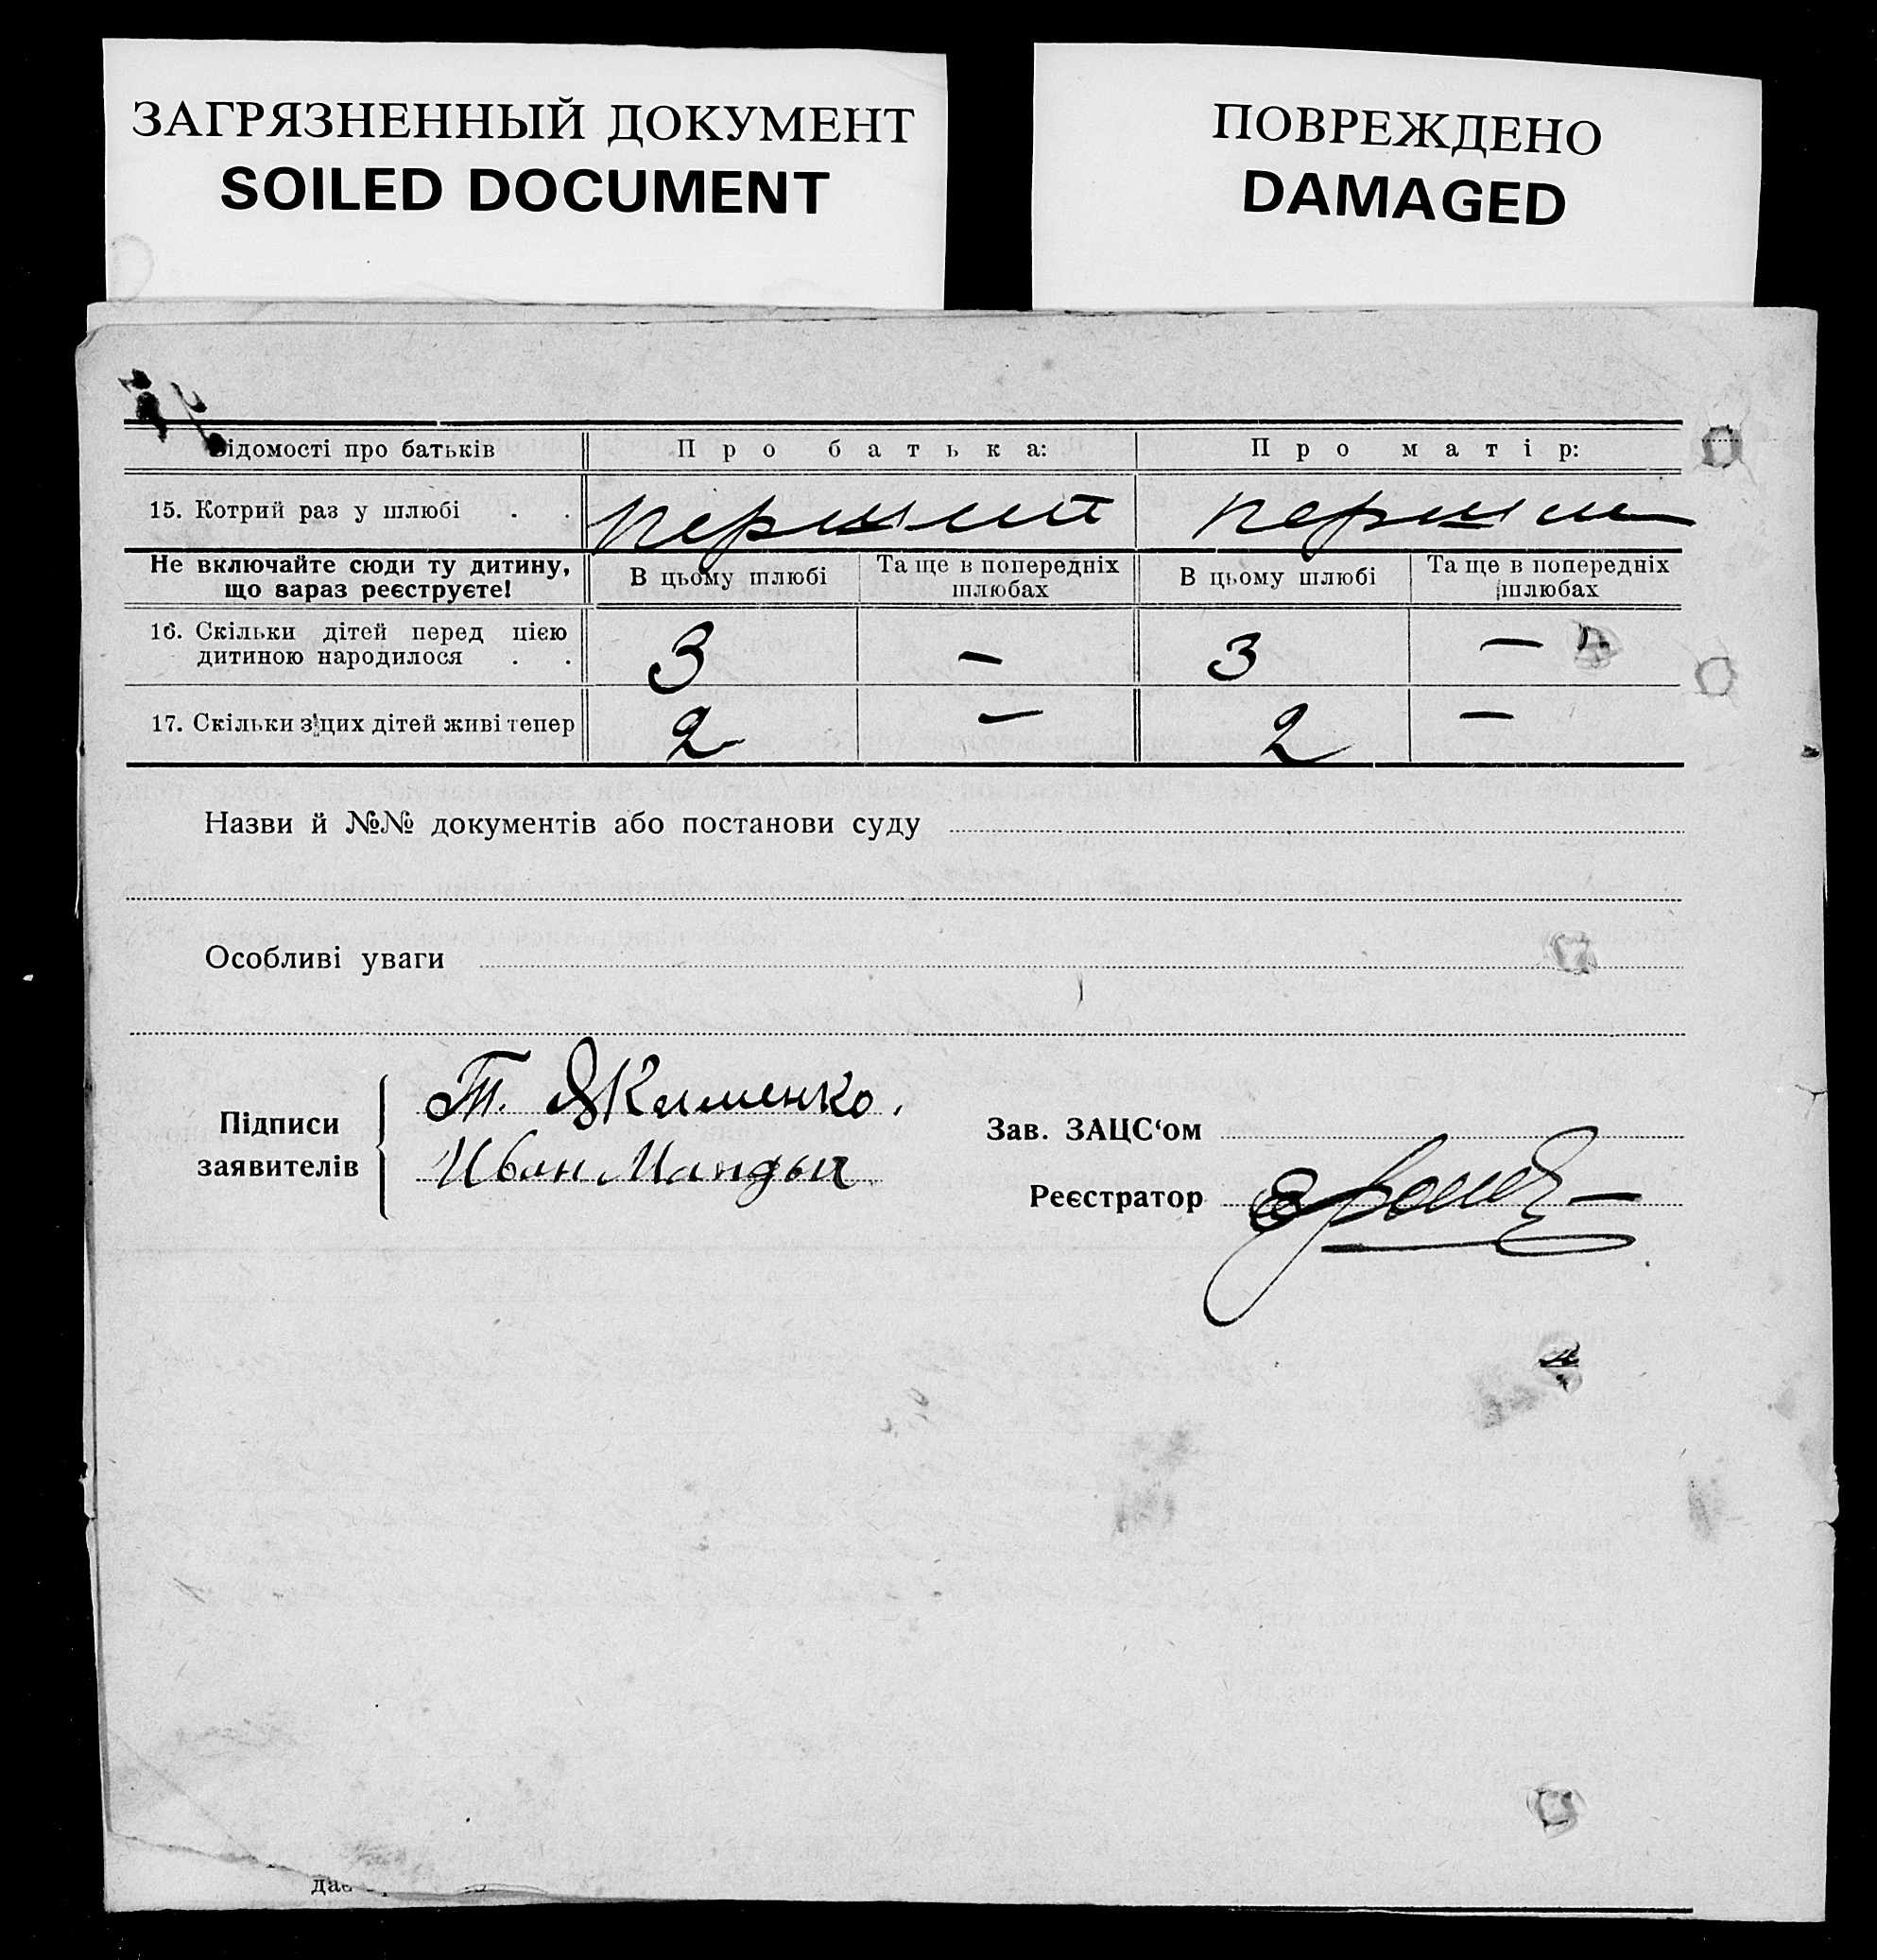 ЗАГРЯЗНЕННЫЙ ДОКУМЕНТ
SOILED DOCUMENT
ПОВРЕЖДЕНО
DAMAGED
ідомості про батьків Про батька: Про матір:
15. Котрий раз у шлюбі . . перший перший
Не включайте сюди ту дитину, що зараз реєструєте! В цьому шлюбі Та ще в попередніх шлюбах В цьому шлюбі Та ще в попередніх шлюбах
16. Скільки дітей перед цією
дитиною народилося . . 3 — 3 —
17. Скільки з цих дітей живі тепер 2 — 2 —
Назви й №№ документів або постанови суду
Особливі уваги
Підписи заявителів
Т. Якименко.
Иван
Зав. ЗАЦС‘ом
Реєстратор